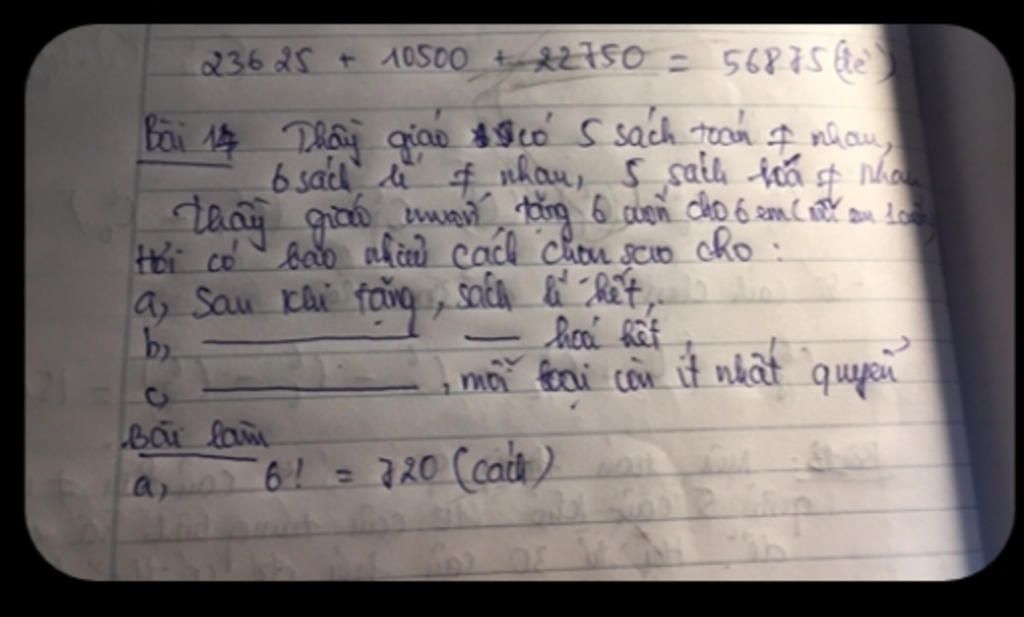 23625 + 10500 + 22750 = 56875 (đề)
Bài 14 Thầy giáo có 5 sách toán ≠ nhau,
6 sách lí ≠ nhau, 5 sách hoá ≠ nhau
Thầy giáo muốn tặng 6 cuốn cho 6 em (mỗi em 1 cuốn)
Hỏi có bao nhiêu cách chọn sao cho :
a, Sau khi tặng, sách lí hết,
b, hoá hết
c, , mỗi loại còn ít nhất quyển
Bài làm
a, 6! = 720 (cách)